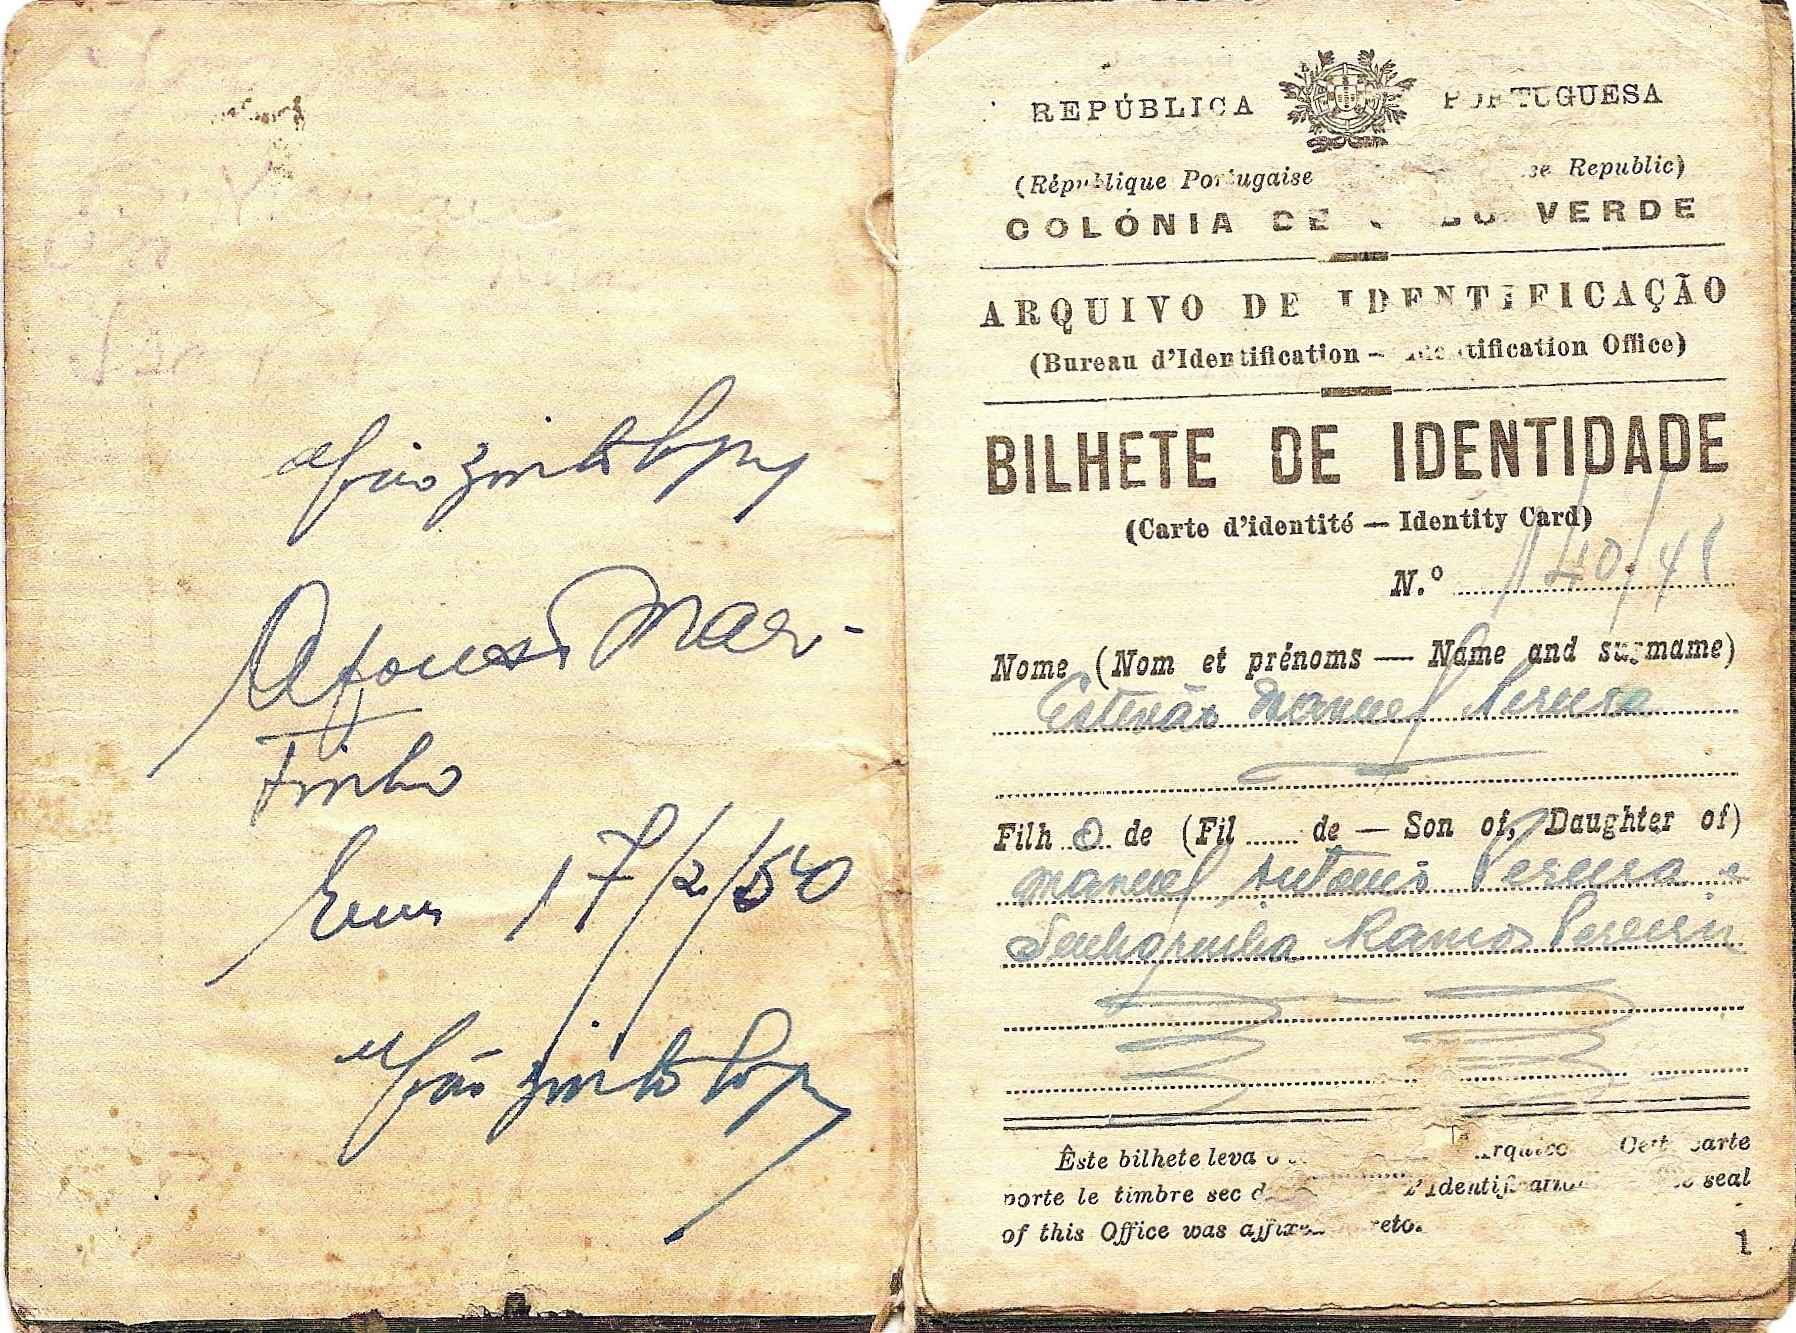 João Pinto Lopes
Afonso Mar-
tinho
Em 17/2/50
João Pinto Lopes
REPÚBLICA PORTUGUESA
(République Portugaise se Republic)
COLÓNIA DE VERDE
ARQUIVO DE IDENTIFICAÇÃO
(Bureau d'Identification — Identification Office)
BILHETE DE IDENTIDADE
(Carte d'identité — Identity Card)
N.º 140/41
Nome (Nom et prénoms — Name and surmame)
Estevão Manuel Pereira
Filh o de (Fil ...... de — Son of, Daughter of)
Manuel Antonio Pereira e
Senhorinha Ramos Pereira
Êste bilhete leva o Cette carte
porte le timbre sec d'Identification seal
of this Office was affixed reto.
1